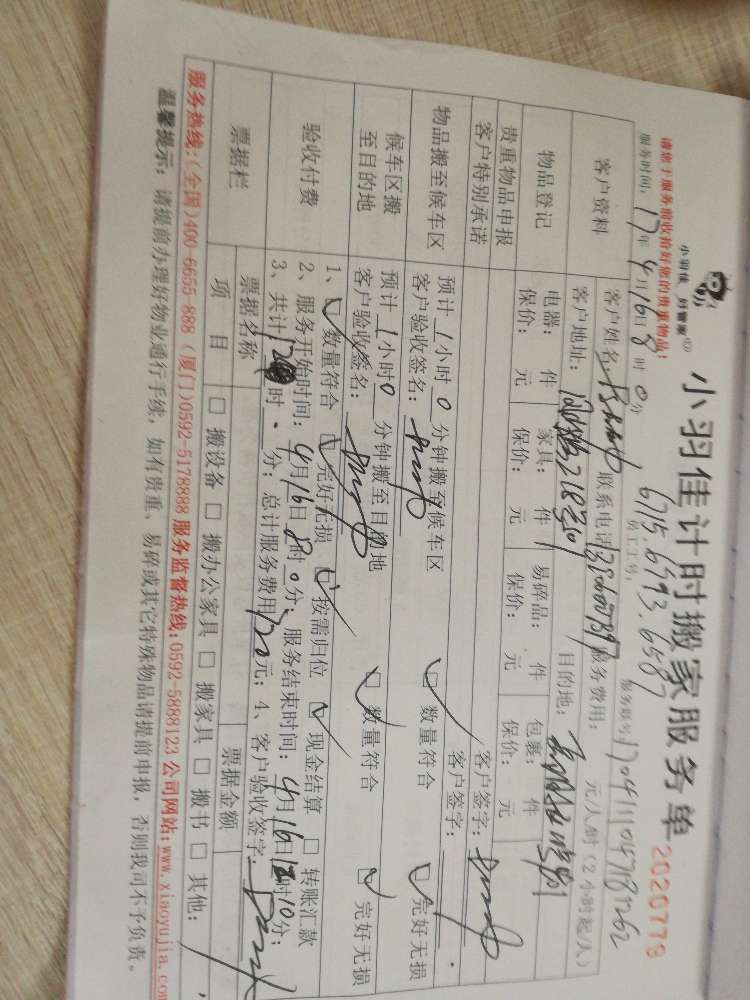 小羽佳 好管家
小羽佳计时搬家服务单 2020779
请您于服务前收拾好您的贵重物品!
6715.6793.6587
服务时间: 17年4月16日8时0分 员工工号: 服务单号
客户资料 客户姓名: 联系电话: 服务费用: 元/人/时(2小时起/人)
客户地址: 目的地:
物品登记 电器: 件 家具: 件 易碎品: 件 包裹: 件
保价: 元 保价: 元 保价: 元 保价: 元
贵重物品申报 客户签字:
客户特别承诺 客户签字:
物品搬至候车区 预计1小时0分钟搬至候车区 □数量符合 □完好无损
客户验收签名:
候车区搬至目的地 预计1小时0分钟搬至目的地 □数量符合 □完好无损
客户验收签名:
验收付费 1、□数量符合 □完好无损 □按需归位 □现金结算 □转账汇款
2、服务开始时间: 4月16日8时0分; 服务结束时间: 4月16日 时10分;
3、共计 时 分; 总计服务费用: 元; 4、客户验收签字:
票据栏 票据名称 票据金额
项目 □搬设备 □搬办公家具 □搬家具 □搬书 □其他:
服务热线:(全国)400-6655-888 (厦门)0592-5178888 服务监督热线:0592-5888123 公司网站:www.xiaoyujia.com
温馨提示: 请提前办理好物业通行手续, 如有贵重、易碎或其它特殊物品请提前申报, 否则我司不予负责。